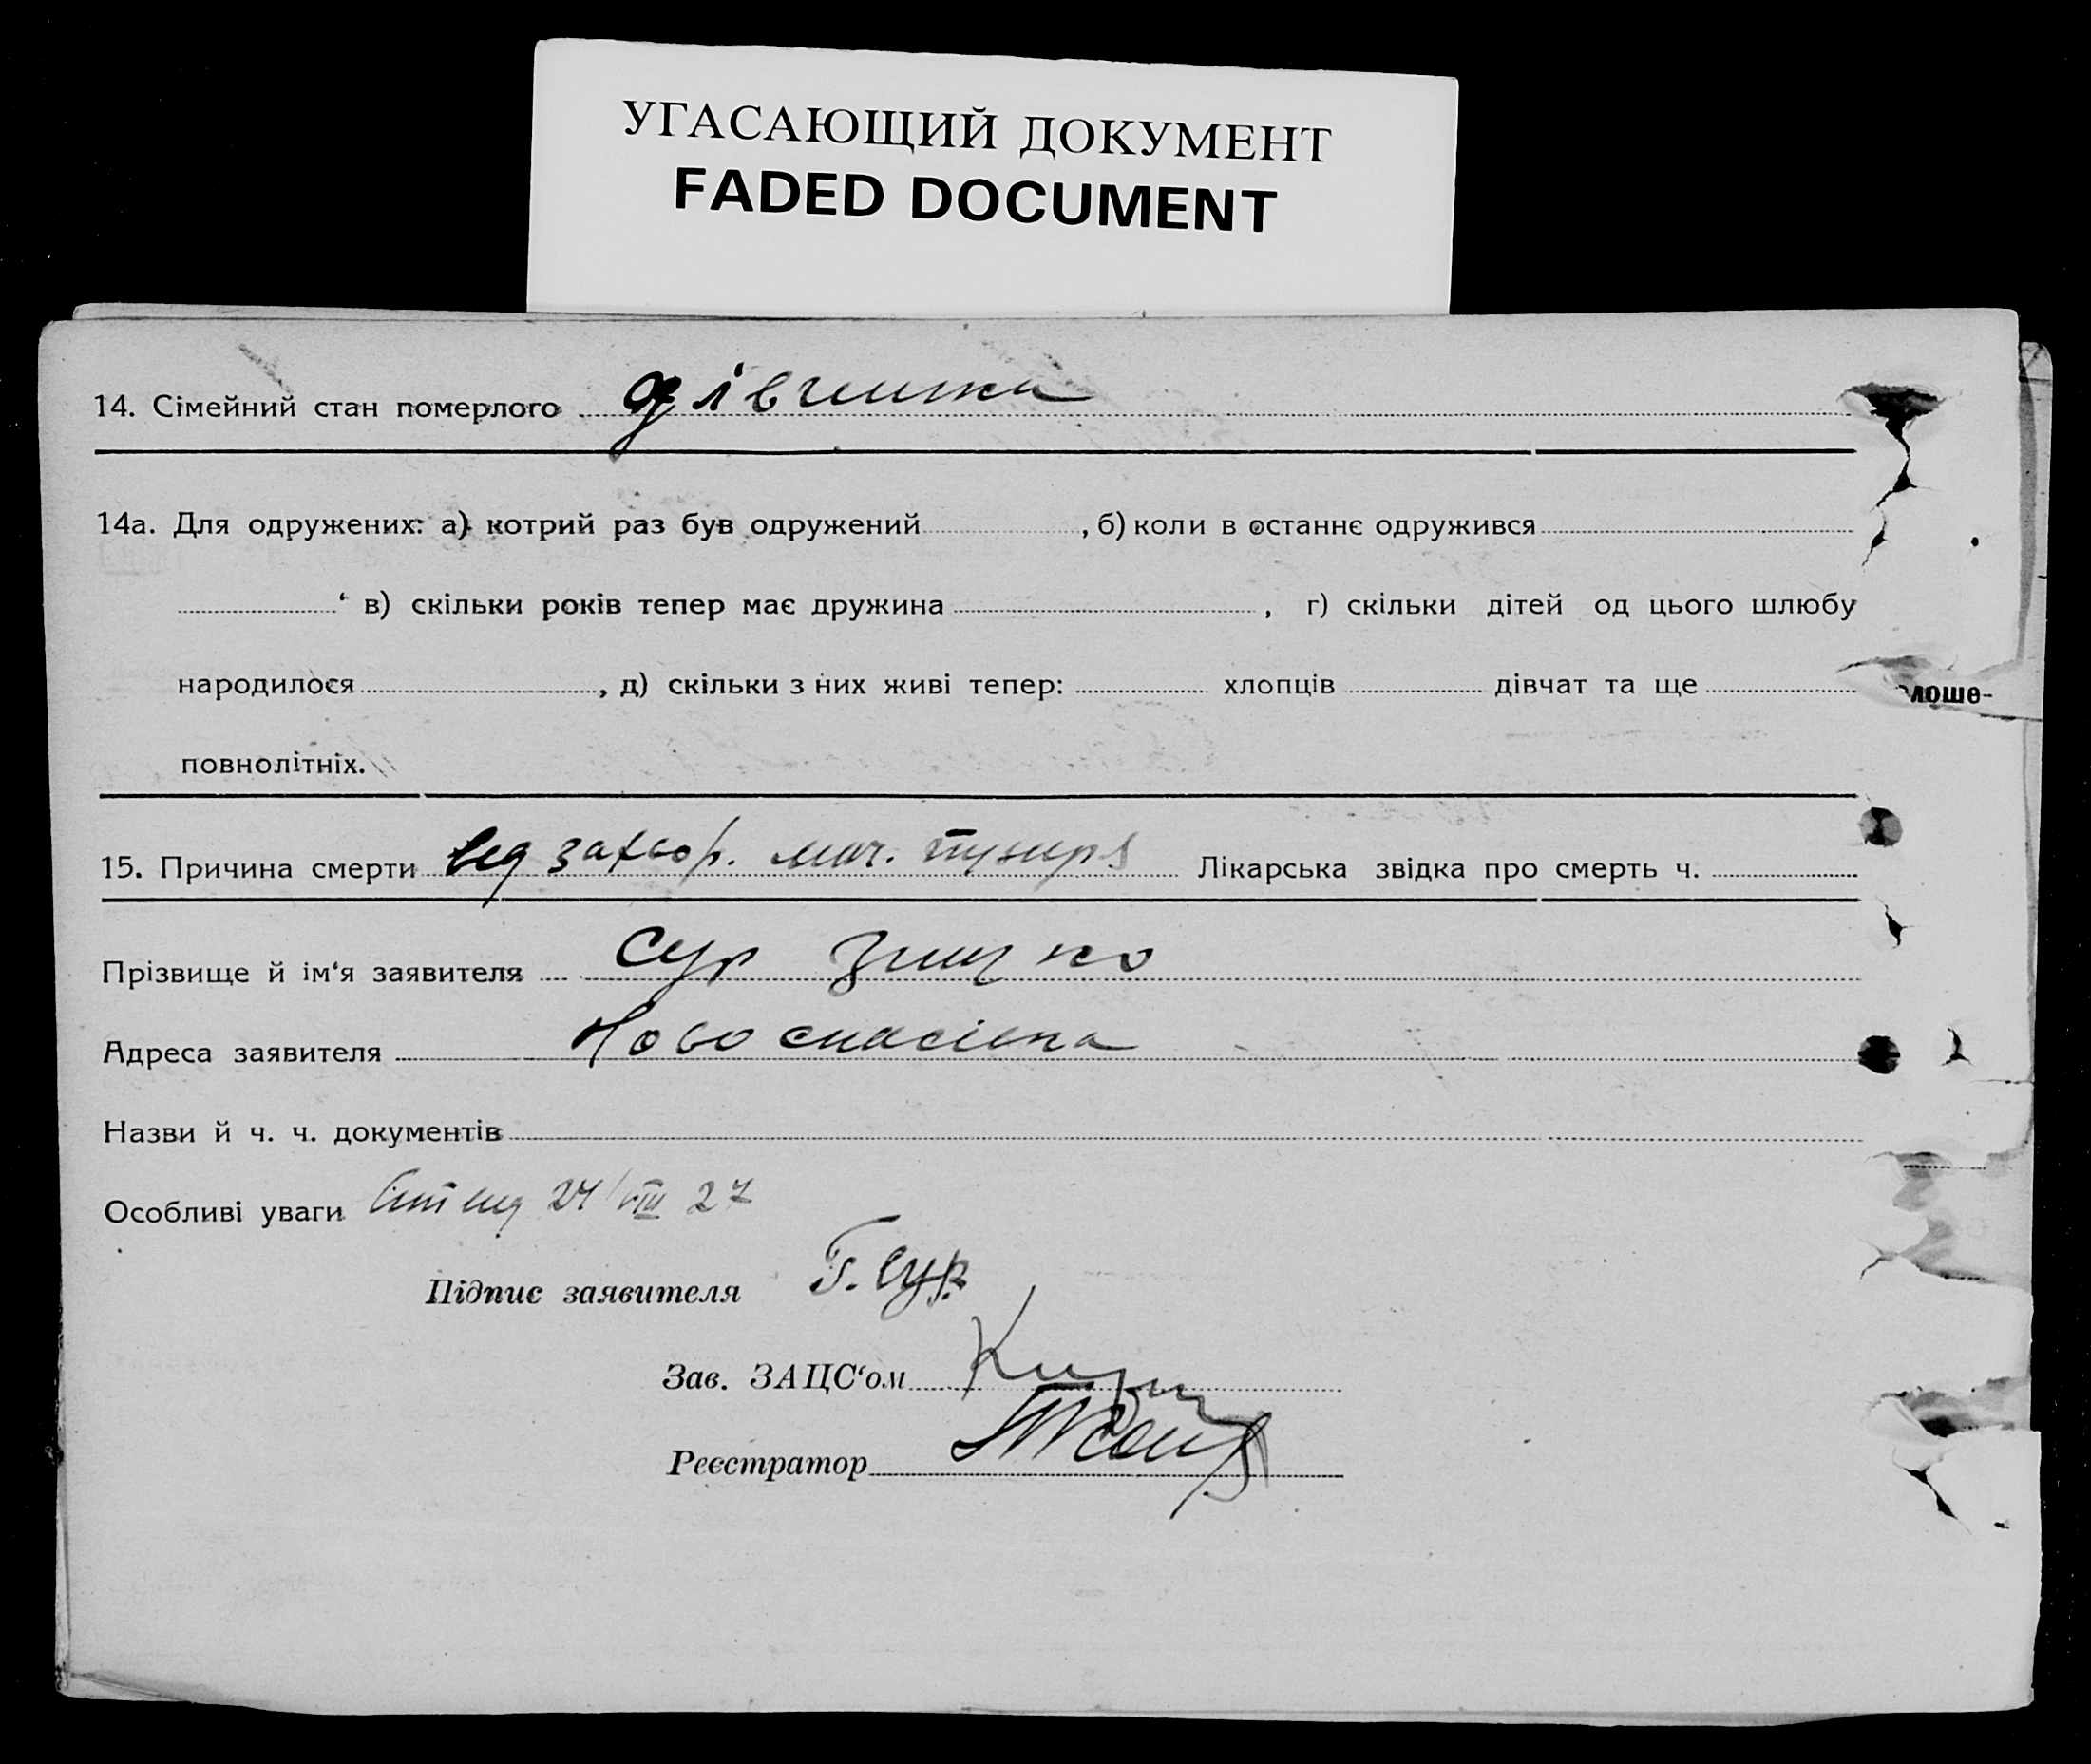 УГАСАЮЩИЙ ДОКУМЕНТ
FADED DOCUMENT
14. Сімейний стан померлого дівчинка
14а. Для одружених: а) котрий раз був одружений , б) коли в останнє одружився
‘ в) скільки років тепер має дружина , г) скільки дітей од цього шлюбу
народилося , д) скільки з них живі тепер: хлопців дівчат та ще
лоше-
повнолітніх.
15. Причина смерти від захвор. моч. пузиря Лікарська звідка про смерть ч.
Прізвище й ім‘я заявителя Сур
Адреса заявителя Новоспасівка
Назви й ч. ч. документів
Особливі уваги 24/VIII 27
Підпис заявителя Г. Сур
Зав. ЗАЦС‘ом
Реєстратор